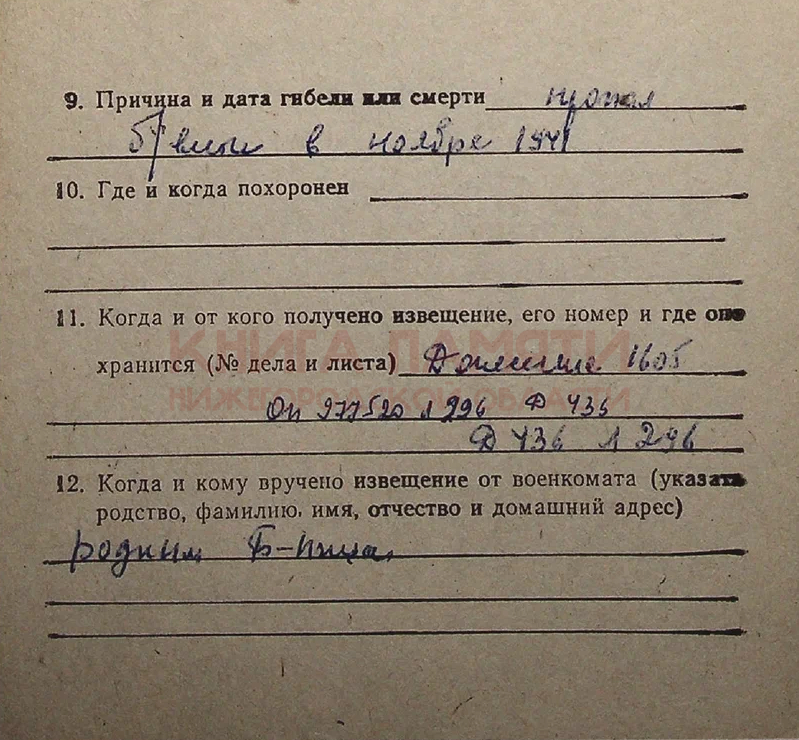 9. Причина и дата гибели или смерти пропал
б/вести в ноябре 1941
10. Где и когда похоронен
11. Когда и от кого получено извещение, его номер и где оно
КНИГА ПАМЯТИ
хранится (№ дела и листа) Донесение 1605
НИЖЕГОРОДСКОЙ ОБЛАСТИ
Оп 977520 л 296 Д 436
Д 436 л 296
12. Когда и кому вручено извещение от военкомата (указать
родство, фамилию, имя, отчество и домашний адрес)
родным